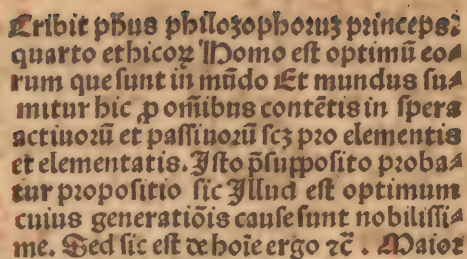 Cribit ph̄us philoꝛophoꝛuꝫ princeps:
quarto ethicoꝝ Homo eſt optimū eo⸗
rum que ſunt in mūdo Et mundus ſu⸗
mitur hic ꝓ om̄ibus contētis in ſpera
actiuoꝛū et paſſiuoꝛū ſcꝫ pꝛo elementis
et elementatis. Iſto p̄ſuppoſito pꝛoba⸗
tur pꝛopoſitio ſic Illud eſt optimum
cuius generatiōis cauſe ſunt nobiliſſi⸗
me. Sed ſic eſt de hoīe ergo ⁊c̄ . Maioꝛ